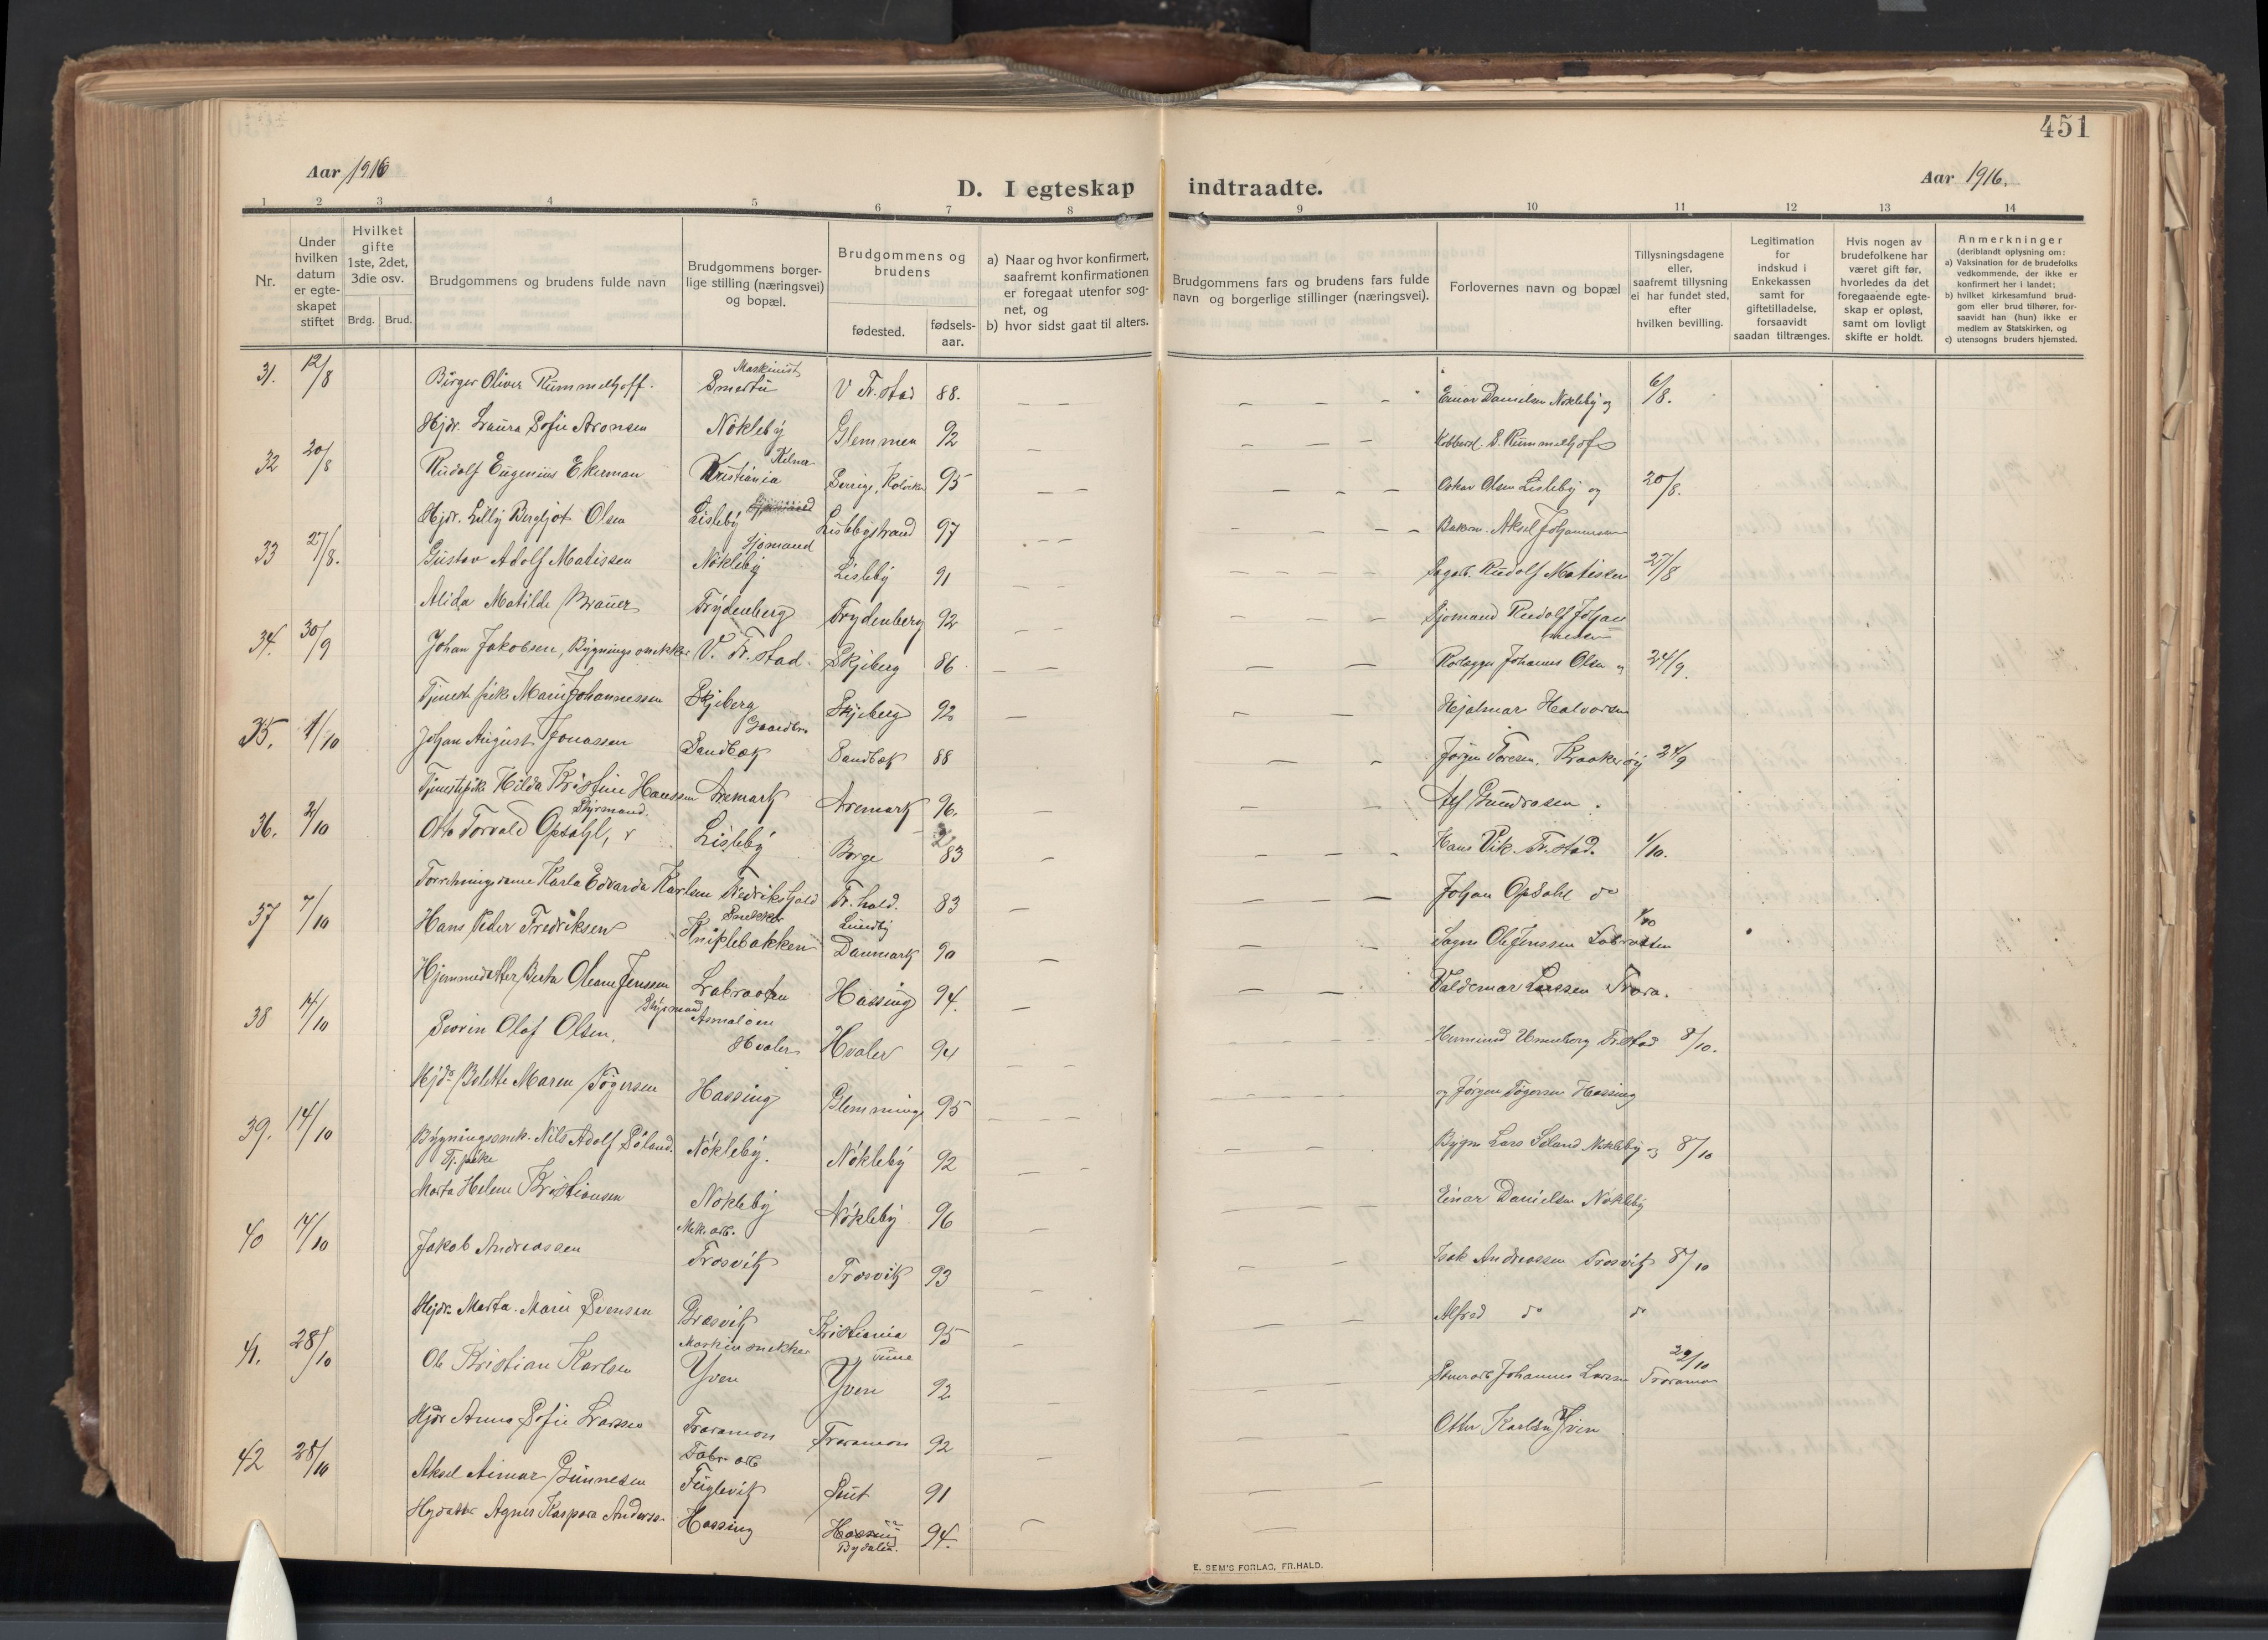 451
Aar 1916
D. I egteskap indtraadte.
Aar 1916.
1 2 3 4 5 6 7 8 9 10 11 12 13 14
Nr.
Under hvilken datum er egteskapet stiftet
Hvilket gifte 1ste, 2det, 3die osv.
Brdg. Brud.
Brudgommens og brudens fulde navn
Brudgommens borgerlige stilling (næringsvei) og bopæl.
Brudgommens og brudens
fødested.
fødselsaar.
a) Naar og hvor konfirmert, saafremt konfirmationen er foregaat utenfor sognet, og
b) hvor sidst gaat til alters.
Brudgommens fars og brudens fars fulde navn og borgerlige stillinger (næringsvei).
Forlovernes navn og bopæl
Tillysningsdagene eller, saafremt tillysning ei har fundet sted, efter hvilken bevilling.
Legitimation for indskud i Enkekassen samt for giftetilladelse, forsaavidt saadan tiltrænges.
Hvis nogen av brudefolkene har været gift før, hvorledes da det foregaaende egteskap er opløst, samt om lovligt skifte er holdt.
Anmerkninger
(deriblandt oplysning om:
a) Vaksination for de brudefolks vedkommende, der ikke er konfirmert her i landet;
b) hvilket kirkesamfund brudgom eller brud tilhører, forsaavidt han (hun) ikke er medlem av Statskirken, og
c) utensogns bruders hjemsted.
31. 12/8 Birger Oliver Rummelhoff. Maskinist Smertu V Fr.stad 88. Einar Danielsen Nøkleby og 6/8.
Hjdr. Laura Sofie Aronsen Nøkleby Glemmen 92 S. Rummelhoff
32 20/8 Rudolf Eugenius Ekerman Kelner Kristiania Sverige, 95 Oskar Olsen Lisleby og 20/8.
Hjdr. Lilly Bergljot Olsen Lisleby Lislebystrand 97 Aksel Johannessen
33 27/8. Gustav Adolf Matissen Sjømand Nøkleby Lisleby 91 Sagarb. Rudolf Matissen 27/8
Alida Matilde Brauer Frydenberg Frydenberg 92 Sjømand Rudolf Johannessen
34. 30/9 Johan Jakobsen, Bygningssnekker V. Fr.stad Skjeberg 86 Johannes Olsen og 24/9.
Tjenestepike Marie Johannessen Skjeberg Skjeberg 92 Hjalmar Halvorsen
35. 1/10 Johan August Jonassen Gaardbr. Sandbæk Sandbæk 88 Jørgen Toresen, Kraakerøy 24/9
Tjenestepike Hilda Kristine Hanssen Aremark Aremark 96. Alf Gundrosen.
36. 2/10 Otto Torvald Opsahl, Styrmand. Lisleby Borge 83 Hans Vik. Fr.stad. 1/10.
Forretningsdame Karla Edvarda Karlsen Fredrikshald Fr.hald. 83 Johan Opsahl do
37 7/10 Hans Peder Fredriksen Snekker Kniplebakken Lundby Danmark 90 Ole Jenssen Labraaten 1/10
Hjemmedatter Berta Oleane Jenssen Labraaten Hassing 94. Valdemar Larssen Trara.
38 14/10 Severin Olaf Olsen, Styrmand Asmaløen Hvaler Hvaler 94 Hermund Unneberg Fr.stad 8/10.
Hjdr Bolette Maren Tøgersen Hassing Glemminge 95 og Jørgen Tøgersen Hassing
39. 14/10 Bygningssnek. Nils Adolf Søland. Nøkleby. Nøkleby 92 Bygm Lars Søland Nøkleby og 8/10
Tj. pike Marta Helene Kristiansen Nøkleby Nøkleby 96 Einar Danielsen Nøkleby
40 14/10 Jakob Andreassen Mek arb. Trosvik Trosvik 93 Isak Andreassen Trosvik 8/10
Hjdr. Marta Marie Svensen Græsvik Kristiania 95 Alfred do do
41. 28/10 Ole Kristian Karlsen Maskinsnekker Yven Tune Yven 92 Johannes Larsen Traramoen 22/10
Hjdr Anna Sofie Larssen Traramoen Traramoen 92 Otto Karlsen Yven
42 28/10 Aksel Aimar Gunnesen Fabr. arb Fuglevik Onsø 91
Hjdatter Agnes Kaspara Anderss. Hassing Hassing Bydalen. 94.
E. SEM'S FORLAG, FR.HALD.